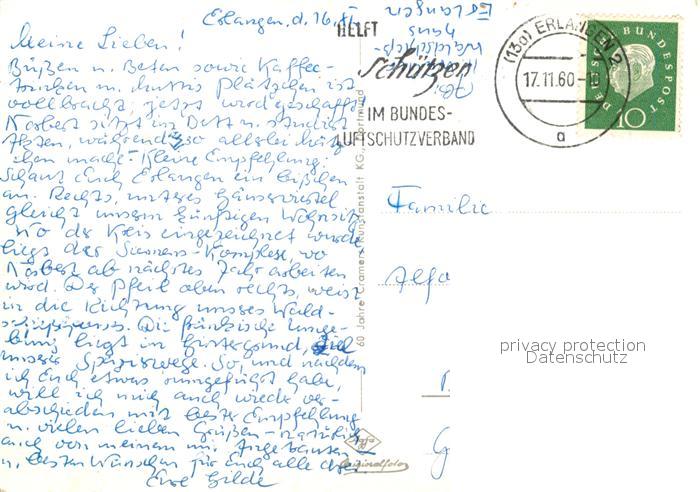 Erlangen, d. 16. XI.
Meine Lieben!
Büßen u. Beten sowie Kaffee-
trinken u. Muttis Plätzchen ist
vollbracht; jetzt wird geschafft.
Norbert sitzt im Bett u. studiert
Akten, während so allerlei
macht. Kleine Empfehlung:
Schaut Euch Erlangen ein bißchen
an. Rechts, unteres Häuserviertel
gleicht unserm künftigen Wohnsitz
Wo der Kreis eingezeichnet wurde
liegt der Siemens-Komplex, wo
Norbert ab nächstes Jahr arbeiten
wird. Der Pfeil oben rechts, weist
in die Richtung unseres Wald-
Die fränkische Umge-
bung liegt im Hintergrund, Ziel
unserer Spazierwege. So, und nachdem
ich Euch etwas rumgeführt habe,
will ich mich auch wieder ver-
abschieden mit bester Empfehlung
u. vielen lieben Grüßen - natürlich
auch von meinem mir Angetrauten
u. besten Wünschen für Euch alle
Eure Gilde
Erlangen
Haus
HELFT
Schützen
IM BUNDES-
LUFTSCHUTZVERBAND
(13a) ERLANGEN 2
17.11.60-10
a
DEUTSCHE BUNDESPOST
10
60 Jahre Cramers Kunstanstalt KG., Dortmund
Familie
privacy protection
Datenschutz
Agfa
Originalfoto